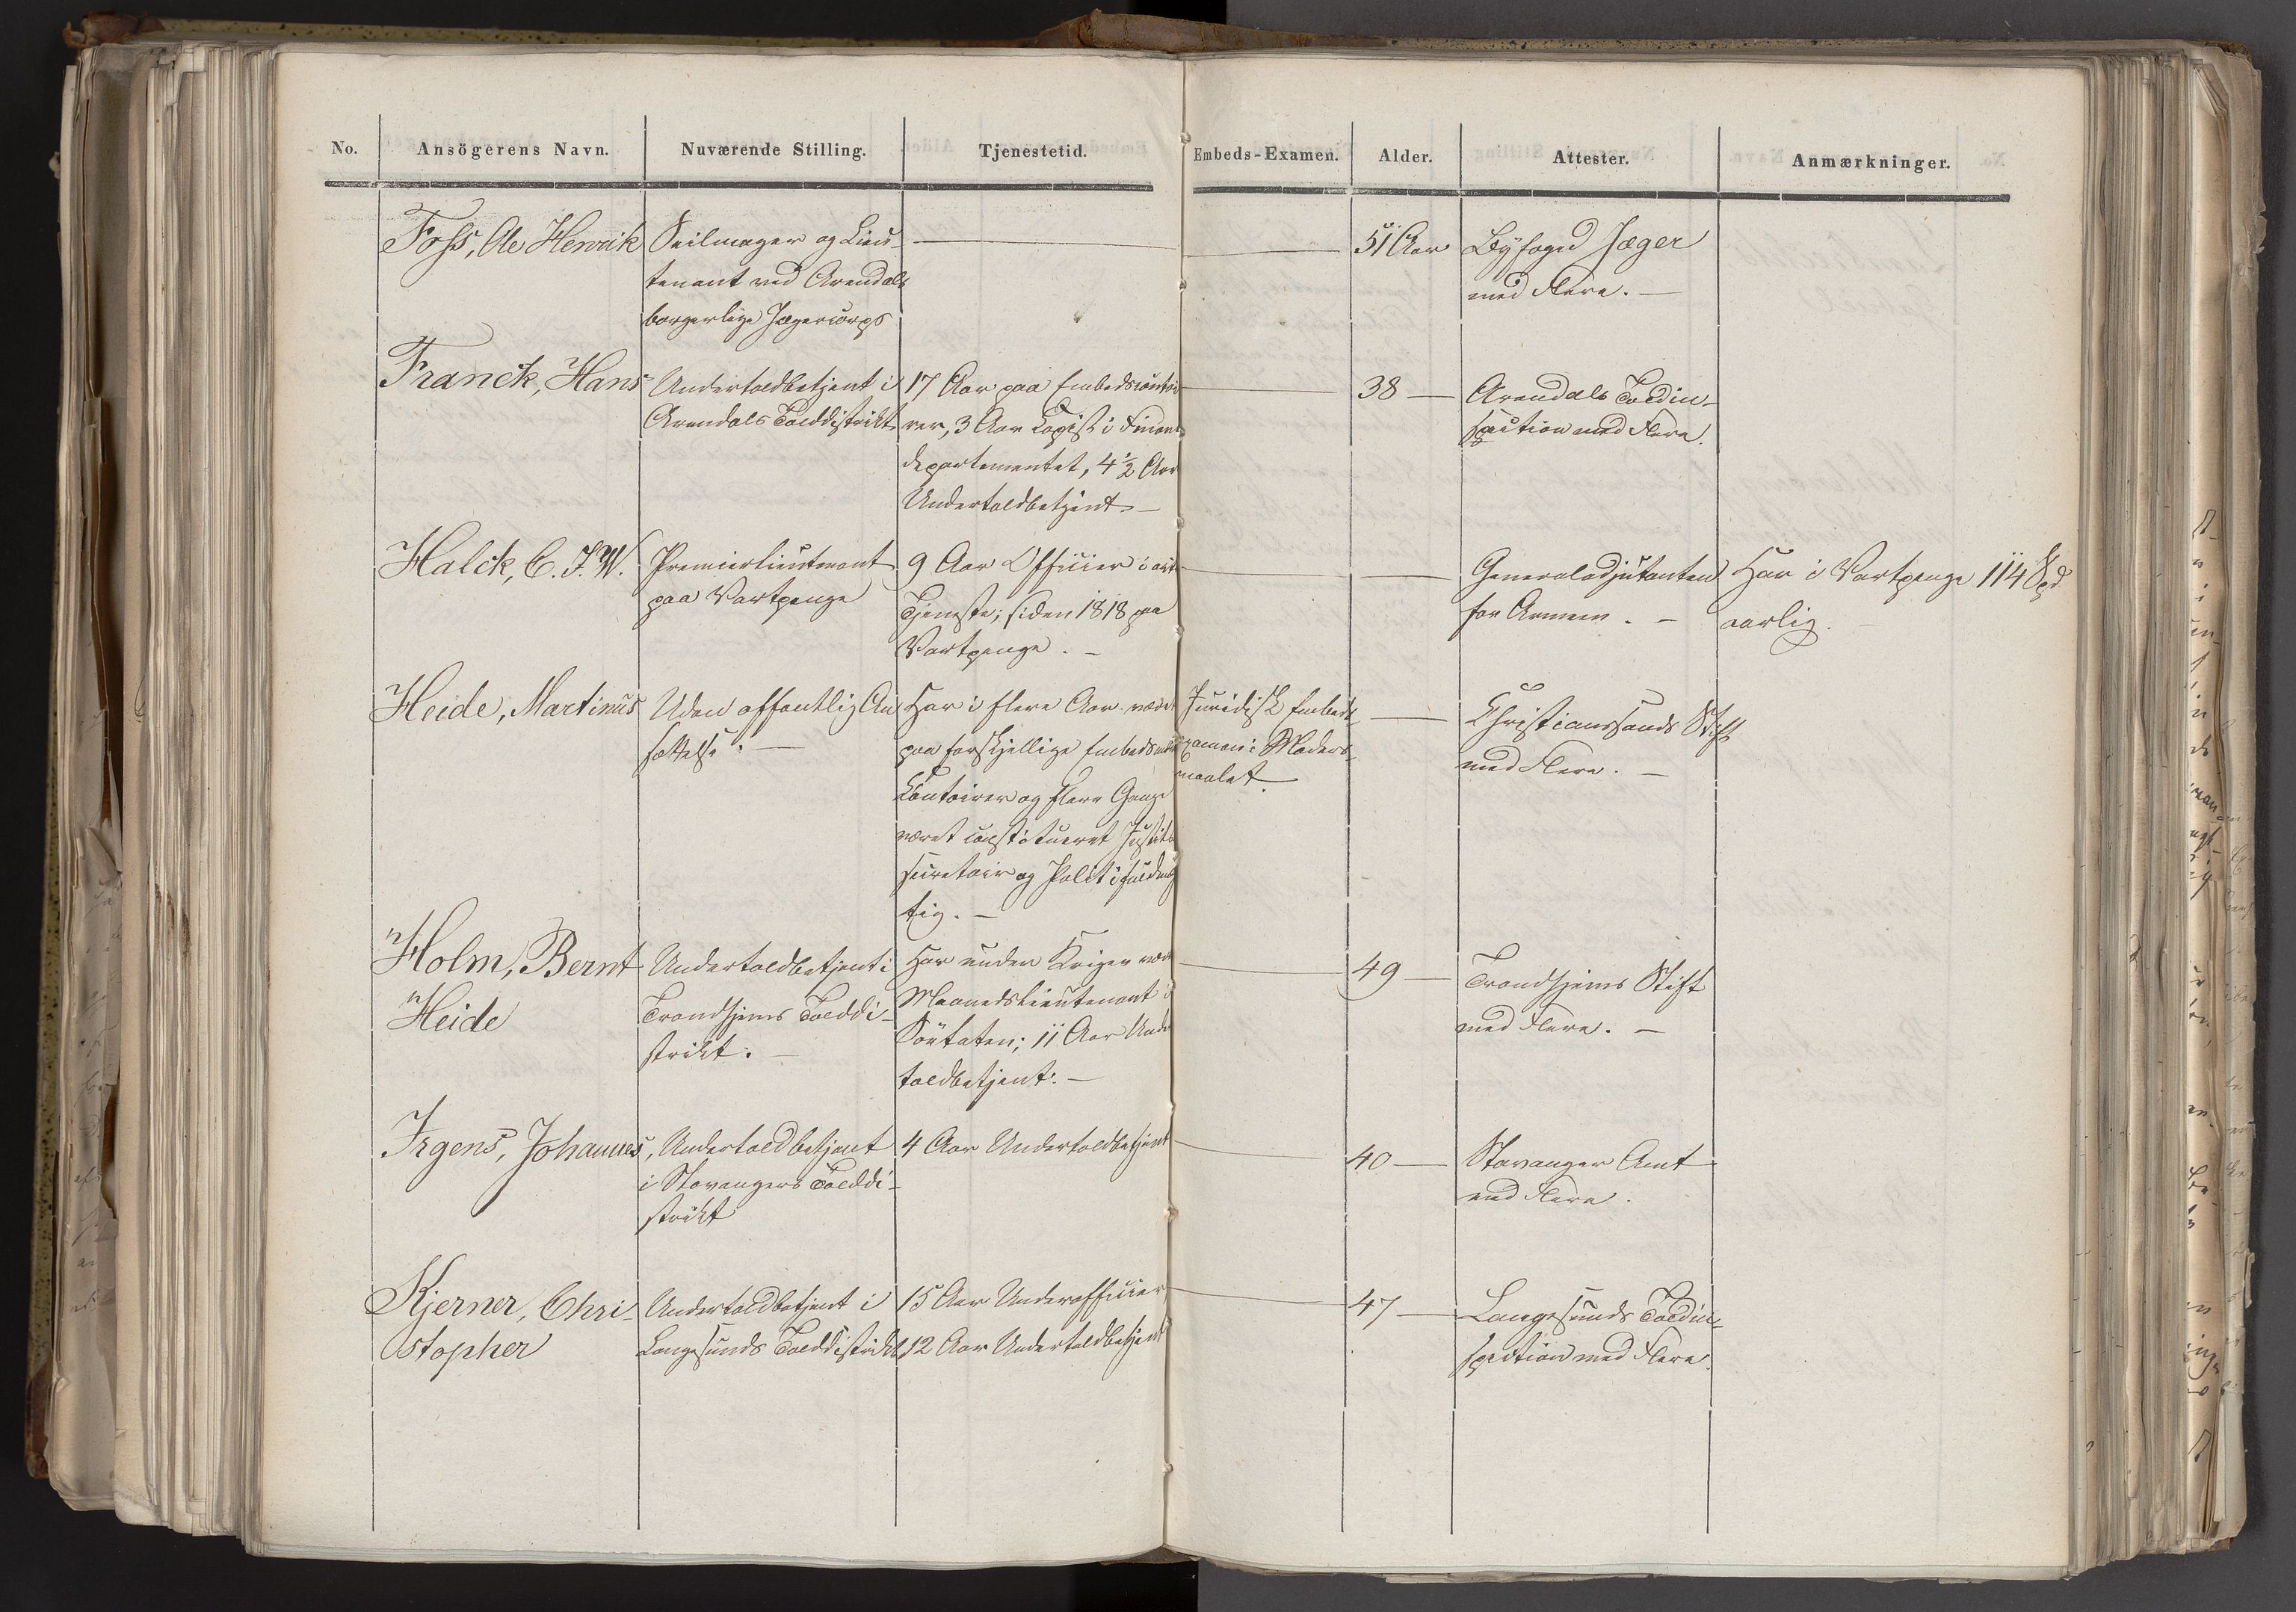 No. Ansögerens Navn. Nuværende Stilling. Tjenestetid. Embeds-Examen. Alder. Attester. Anmærkninger.
Foss, Ole Henrik
Seilmager og Lieu-
tenant ved Arendals
borgerlige Jægercorps
51 Aar
Byfoged Jæger
med Flere. —
Franck, Hans
Undertoldbetjent i
Arendals Tolddistrikt
17 Aar paa Embedscontoi
rer, 3 Aar Copist i Finants
departementet, 4½ Aar
Undertoldbetjent. —
38 —
Arendals Toldin-
spection med Flere.
Halck, C. F. W.
Premierlieutenant
paa Vartpenge
9 Aar Officier i activ
Tjeneste; siden 1818 paa
Vartpenge. —
Generaladjutanten
for Armeen. —
Har i Vartpenge 114 Spd
aarlig.
Heide, Martinus
Uden offentlig An
sættelse. —
Har i flere Aar været
paa forskjellige Embedsmænds
Contoirer og flere Gange
været constitueret Justits
secretair og Politifuldmæg
tig. —
Juridisk Embeds-
examen i Moders-
maalet.
Christianssands Stift
med Flere. —
Holm, Bernt
Heide
Undertoldbetjent i
Trondhjems Tolddi-
strikt. —
Har under Krigen været
Maanedslieutenant i
Söetaten; 11 Aar Under
toldbetjent. —
49 —
Trondhjems Stift
med Flere. —
Irgens, Johannes,
Undertoldbetjent
i Stavangers Tolddi-
strikt
4 Aar Undertoldbetjent
40 —
Stavanger Amt
med Flere.
Kjerner, Chri-
stopher
Undertoldbetjent i
Langesunds Tolddistrikt
15 Aar Underofficier
12 Aar Undertoldbetjent
47 —
Langesunds Toldin-
spection med Flere.